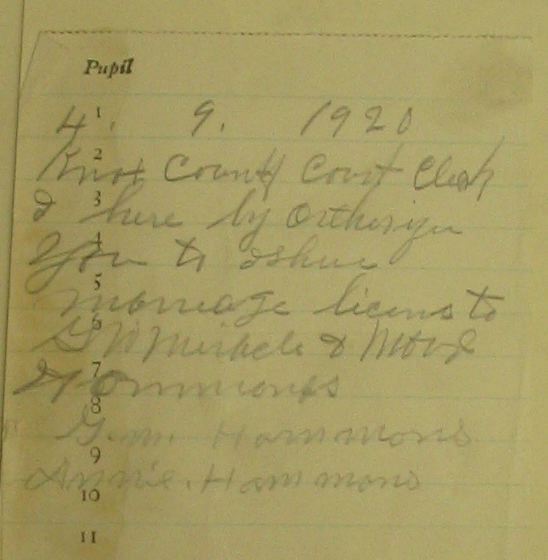 Pupil
1 4. 9. 1920
2 Knox County Court Clerk
3 I here by Ortherize
4 You to Ishue
5 marriage licens to
6 G W Miracle &
7 Hommons
8 G.M. Hammons
9 Annie. Hammons
10
11